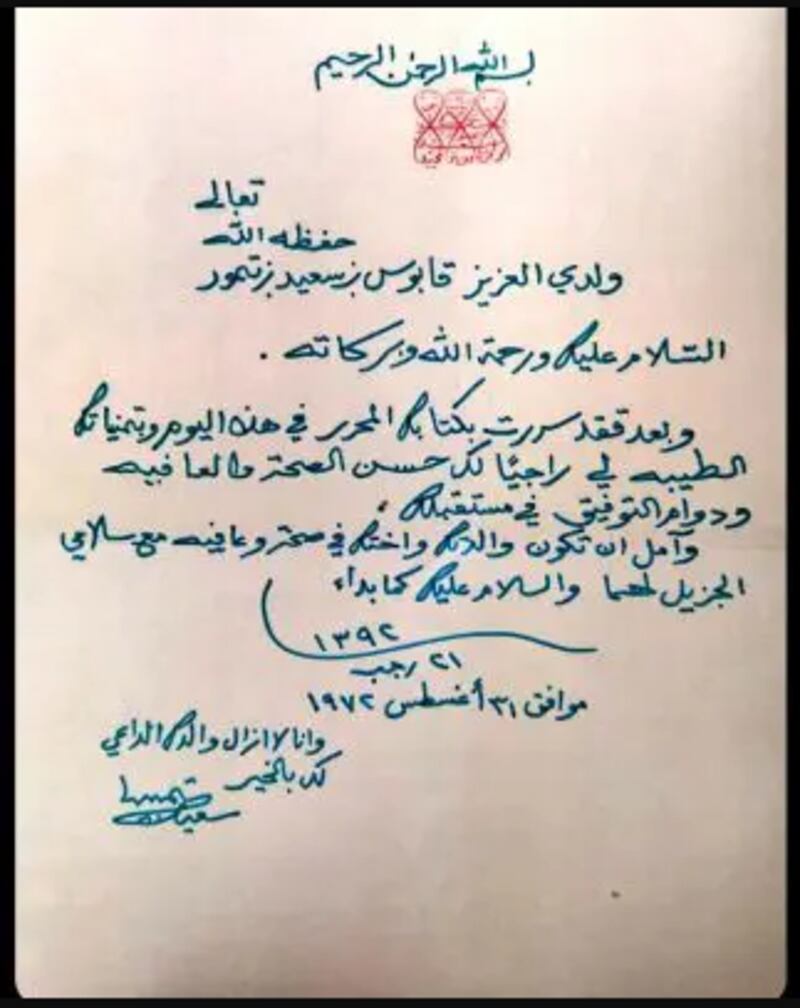 بسم الله الرحمن الرحيم
تعالى
حفظه الله
ولدي العزيز قابوس بن سعيد بن تيمور
السّلام عليكم ورحمة الله وبركاته .
وبعد فقد سررت بكتابكم المحرر في هذا اليوم وبتمنياتكم
الطيبه لي راجيًا لك حسن الصحة والعافيه
ودوام التوفيق في مستقبلكم ،
وآمل ان تكون والدتكم واختكم في صحة وعافيه مع سلامي
الجزيل لهما والسلام عليكم كما بداء
١٣٩٢
٢١ رجب
موافق ٣١ أغسطس ١٩٧٢
وانا لا ازال والدكم الداعي
لك بالخير
سعيد بن تيمور